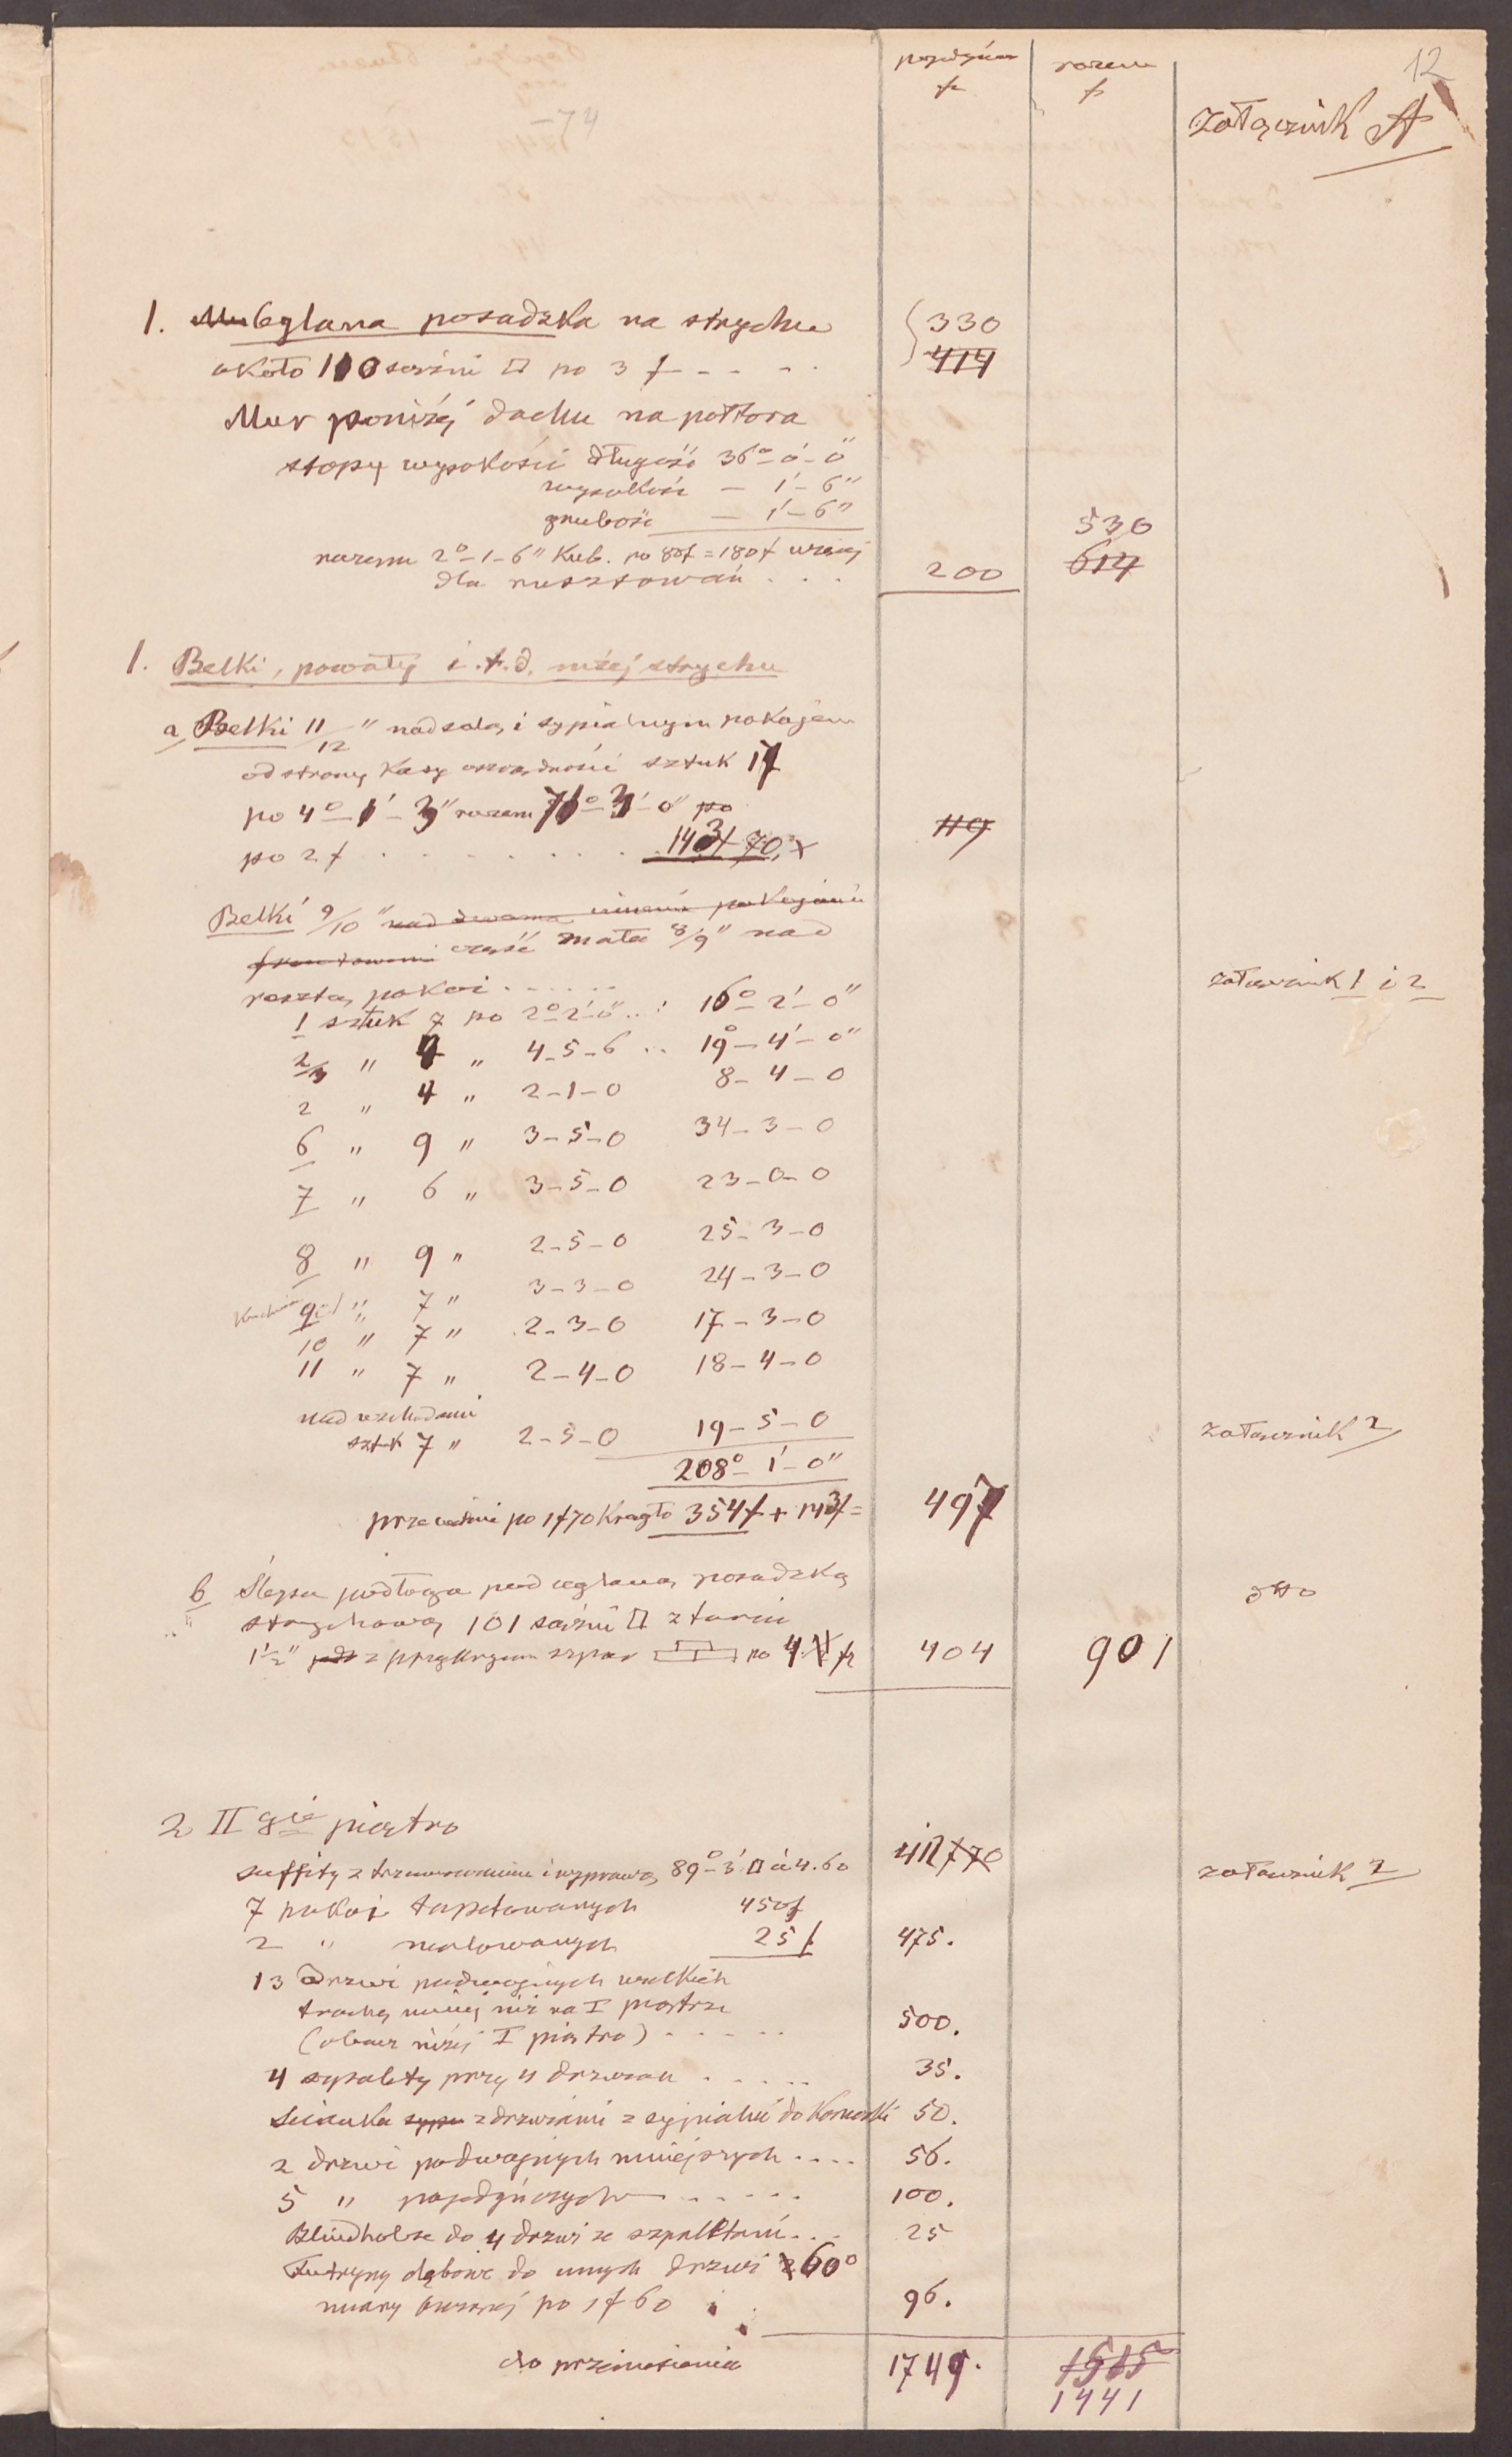 12
Załącznik A
razem
f
-74
1. Ceglana posadzka na strychu 330
około 110 sążni □ po 3 f - - - 414
Mur poniżej dachu na półtora
stopy wysokości długość 36°-0'-0"
wysokość - 1'-6"
grubość - 1'-6" 530
razem 2°-1-6" Kub. po 80f = 180f 614
dla rusztowań . . . 200
1. Belki, powały i.t.d. niżej strychu
a, Belki 11/12" nad salą i sypialnym pokojem
od strony Kasy sztuk 17
po 4°-1'-3" razem 71°-3'-0" po
po 2 f . . . . . . . 143f 70 x 119
Belki 9/10" nad dwoma pokojami
część mała 8/9" nad
resztą pokoi . . . . . załącznik 1 i 2
1 sztuk 7 po 2°-2'-0" .. 16°-2'-0"
2/3 " 4 " 4-5-6 .. 19°-4'-0"
2 " 4 " 2-1-0 8-4-0
6 " 9 " 3-5-0 34-3-0
7 " 6 " 3-5-0 23-0-0
8 " 9 " 2-5-0 25-3-0
9 " 7 " 3-3-0 24-3-0
10 " 7 " 2-3-0 17-3-0
11 " 7 " 2-4-0 18-4-0
nad wschodami
sztuk 7 " 2-5-0 19-5-0 załącznik 2
208°-1'-0"
po 1f70 Krągło 354f + 143f = 497
b Ślepa podłoga pod ceglaną posadzką
strychową 101 sążni □ z tarcic dtto
1½" z przykryciem szpar po 4 f 404 901
2 II gie piętro
suffity z trzcinowaniem i wyprawą 89°-3' □ à 4.60 412 f 70 załącznik 2
7 pokoi tapetowanych 450f
2 " malowanych 25 f. 475.
13 drzwi podwójnych wielkich
trochę mniej niż na I piętrze
(obacz niżej I piętro) . . . . . 500.
4 szpalety przy 4 drzwiach . . . . . 35.
Scianka z drzwiami z sypialni do Komórki 50.
2 drzwi podwójnych mniejszych . . . . 56.
5 " pojedyńczych . . . . . 100.
Blindholze do 4 drzwi ze szpaletami . . . 25
Futryny dębowe do innych drzwi 60°
miary bieżącej po 1 f 60 96.
do przeniesienia 1749. 1515
1441